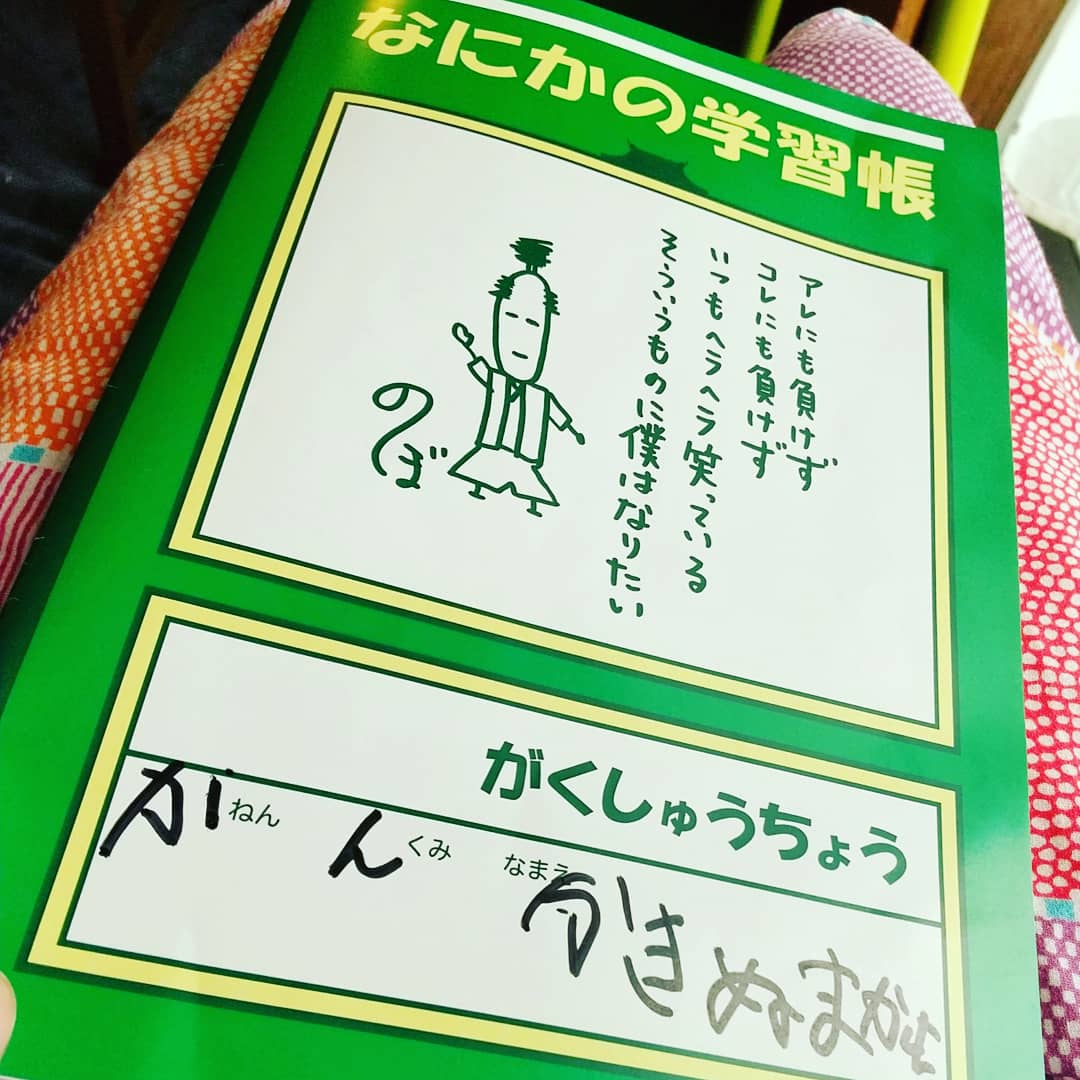 なにかの学習帳
アレにも負けず
コレにも負けず
いつもヘラヘラ笑っている
そういうものに僕はなりたい
のぼ
がくしゅうちょう
が ねん ん くみ なまえ
かきぬまか